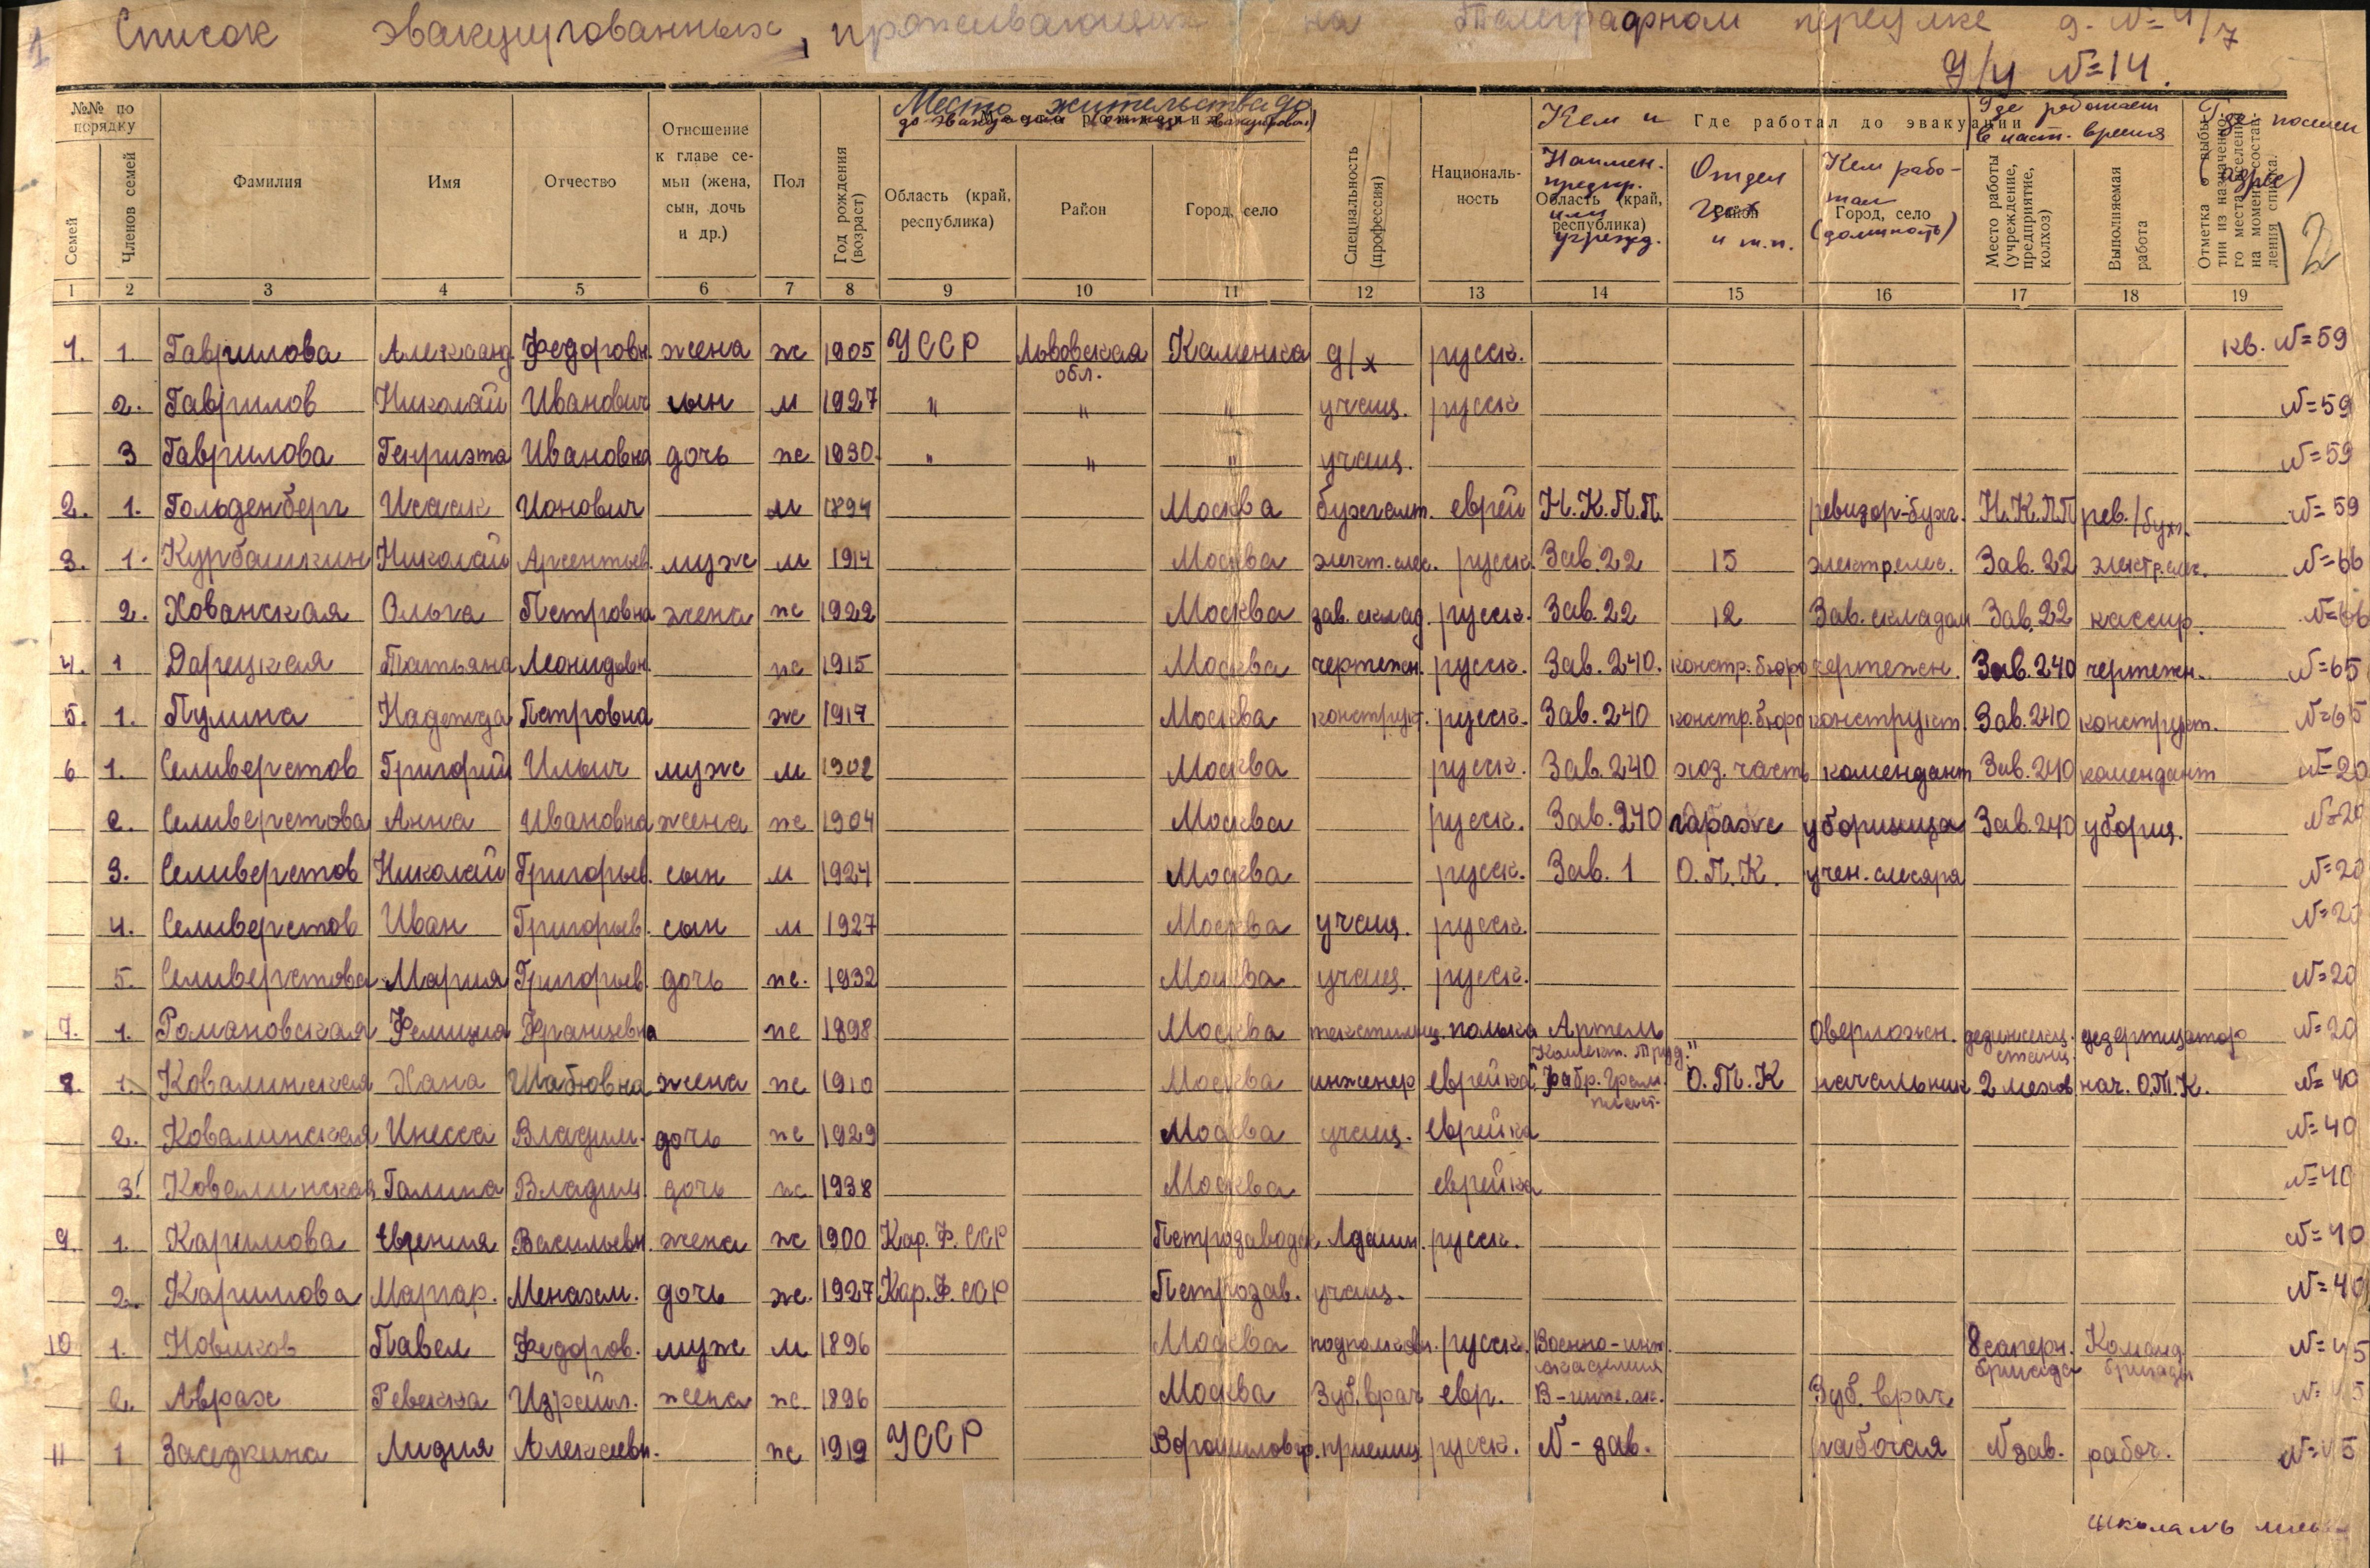 1 Список эвакуированных, проживающих на Телеграфном переулке д. № 4/7
У/У №=14.
№№ по порядку
Семей
Членов семей
Фамилия
Имя
Отчество
Отношение к главе семьи (жена, сын, дочь и др.)
Пол
Год рождения (возраст)
Место жительства до
до эвакуации
Место рождения
Область (край, республика)
Район
Город, село
Специальность (профессия)
Националь-ность
Кем и Где работал до эвакуации
Наимен. предпр. или учрежд.
Область (край, республика)
Отдел цех и т.п.
Район
Кем рабо-тал (должность)
Город, село
Где работает в наст. время
Место работы (учреждение, предприятие, колхоз)
Выполняемая работа
Отметка о выбытии из назначенного места вселения на момент составления списка.
(адрес)
2
1 2 3 4 5 6 7 8 9 10 11 12 13 14 15 16 17 18 19
1. 1. Гаврилова Александ. Федоровн. жена ж 1905 УССР Львовская обл. Каменка д/х русск. кв. №=59
2. Гаврилов Николай Иванович сын м 1927 " " " учащ. русск №=59
3 Гаврилова Генриэта Ивановна дочь ж 1930. " " " учащ. №=59
2. 1. Гольденберг Исаак Ионович м 1894 Москва бухгалт. еврей Н.К.П.П. ревизор-бухг. Н.К.ПП рев./бухг. №=59
3. 1. Курбашкин Николай Арсентьев. муж м 1914 Москва элект.слес. русск. Зав.22 15 электрслес. Зав.22 электр.слес. №=66
2. Хованская Ольга Петровна жена ж 1922 Москва зав.склад. русск. Зав.22 12 Зав.складом Зав.22 кассир. №=66
4. 1 Дарецкая Татьяна Леонидовн. ж 1915 Москва чертежн. русск. Зав.240. констр.бюро чертежн. Зав.240 чертежн. №=65
5. 1. Пулина Надежда Петровна ж 1917 Москва конструкт. русск. Зав.240 констр.бюро конструкт. Зав.240 конструкт. №=65
6 1. Селиверстов Григорий Ильич муж м 1902 Москва русск. Зав.240 хоз.часть комендант Зав.240 комендант №=20
2. Селиверстова Анна Ивановна жена ж 1904 Москва русск. Зав.240 гараж уборщица Зав.240 уборщ. №=20
3. Селиверстов Николай Григорьев. сын м 1924 Москва русск. Зав. 1 О.П.К. учен.слесаря №=20
4. Селиверстов Иван Григорьев. сын м 1927 Москва учащ. русск. №=20
5. Селиверстова Мария Григорьев. дочь ж. 1932 Москва учащ. русск. №=20
7. 1. Романовская Фелиция Францевна ж 1898 Москва текстильщ. полька Артель "Коллект. труд." Оверложн. дезинсекц. станц. дезертицатор №=20
8. 1. Ковалинская Хана Шабтовна жена ж 1910 Москва инженер еврейка Фабр. Грам.пласт. О.Т.К начальник 2 мехов. нач. О.Т.К. №=40
2. Ковалинская Инесса Владим. дочь ж 1929 Москва учащ. еврейка №=40
3. Ковалинская Галина Владим. дочь ж 1938 Москва еврейка №=40
9. 1. Каримова Евгения Васильевн. жена ж 1900 Кар. Ф. ССР Петрозаводск Админ. русск. №=40
2. Каримова Маргар. Менахем. дочь ж. 1927 Кар. Ф. ССР Петрозав. учащ. №=40
10 1. Новиков Павел Федоров. муж м 1896 Москва подполковн. русск. Военно-инж. академия 8 саперн. бригада Команд. бригады №=45
2. Аврах Ревекка Израил. жена ж. 1896 Москва Зуб.врач евр. В-инж.ак. Зуб. врач №=45
11 1 Заседкина Лидия Алексеевн. ж 1919 УССР Ворошиловгр. приемщ. русск. № - зав. рабочая № зав. рабоч. №=45